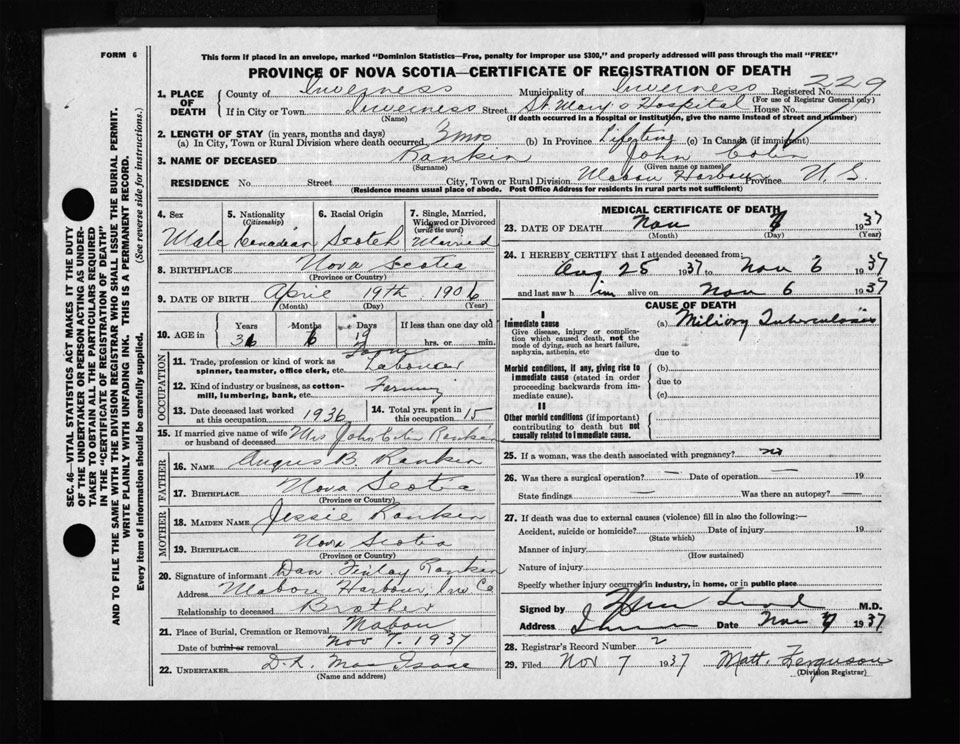 FORM 6
This form if placed in an envelope, marked "Dominion Statistics—Free, penalty for improper use $300," and properly addressed will pass through the mail "FREE"
PROVINCE OF NOVA SCOTIA—CERTIFICATE OF REGISTRATION OF DEATH
SEC. 46—VITAL STATISTICS ACT MAKES IT THE DUTY
OF THE UNDERTAKER OR PERSON ACTING AS UNDER-
TAKER TO OBTAIN ALL THE PARTICULARS REQUIRED
IN THE "CERTIFICATE OF REGISTRATION OF DEATH"
AND TO FILE THE SAME WITH THE DIVISION REGISTRAR WHO SHALL ISSUE THE BURIAL PERMIT.
WRITE PLAINLY WITH UNFADING INK. THIS IS A PERMANENT RECORD.
Every item of information should be carefully supplied. (See reverse side for instructions.)
1. PLACE OF DEATH County of Inverness Municipality of Inverness Registered No. 229
(For use of Registrar General only)
If in City or Town Inverness Street St. Mary's Hospital House No.
(Name) (If death occurred in a hospital or institution, give the name instead of street and number)
2. LENGTH OF STAY (in years, months and days)
(a) In City, Town or Rural Division where death occurred 3 mos (b) In Province Lifetime (c) In Canada (if immigrant)
3. NAME OF DECEASED Rankin John Colin
(Surname) (Given name or names)
RESIDENCE No. Street City, Town or Rural Division Mabou Harbour Province N.S.
(Residence means usual place of abode. Post Office Address for residents in rural parts not sufficient)
4. Sex Male
5. Nationality (Citizenship) Canadian
6. Racial Origin Scotch
7. Single, Married, Widowed or Divorced (write the word) Married
8. BIRTHPLACE Nova Scotia
(Province or Country)
9. DATE OF BIRTH April 19th 1906
(Month) (Day) (Year)
10. AGE in Years Months Days If less than one day old
6 hrs. or min.
OCCUPATION
11. Trade, profession or kind of work as spinner, teamster, office clerk, etc. Farm Labourer
12. Kind of industry or business, as cotton-mill, lumbering, bank, etc. Farming
13. Date deceased last worked at this occupation 1936
14. Total yrs. spent in this occupation 15
15. If married give name of wife or husband of deceased Mrs John Colin Rankin
FATHER
16. NAME Angus B. Rankin
17. BIRTHPLACE Nova Scotia
(Province or Country)
MOTHER
18. MAIDEN NAME Jessie Rankin
19. BIRTHPLACE Nova Scotia
(Province or Country)
20. Signature of informant Dan Finlay Rankin
Address Mabou Harbour, Inv Co
Relationship to deceased Brother
21. Place of Burial, Cremation or Removal Mabou
Date of burial or removal Nov 7. 1937
22. UNDERTAKER D. R. Mac Isaac
(Name and address)
MEDICAL CERTIFICATE OF DEATH
23. DATE OF DEATH Nov 7 1937
(Month) (Day) (Year)
24. I HEREBY CERTIFY that I attended deceased from:
Aug 25 1937 to Nov 6 1937
and last saw h im alive on Nov 6 1937
CAUSE OF DEATH
I
Immediate cause (a) Miliary Tuberculosis
Give disease, injury or complica-
tion which caused death, not the
mode of dying, such as heart failure,
asphyxia, asthenia, etc due to
Morbid conditions, if any, giving rise to (b)
immediate cause (stated in order due to
proceeding backwards from im-
mediate cause). (c)
II
Other morbid conditions (if important)
contributing to death but not
causally related to immediate cause.
25. If a woman, was the death associated with pregnancy?
26. Was there a surgical operation? — Date of operation — 19
State findings — Was there an autopsy? —
27. If death was due to external causes (violence) fill in also the following:—
Accident, suicide or homicide? Date of injury 19
(State which)
Manner of injury
(How sustained)
Nature of injury
Specify whether injury occurred in industry, in home, or in public place
Signed by M.D.
Address Date Nov 7 1937
28. Registrar's Record Number 2
29. Filed Nov 7 1937 Matt. Ferguson
(Division Registrar)